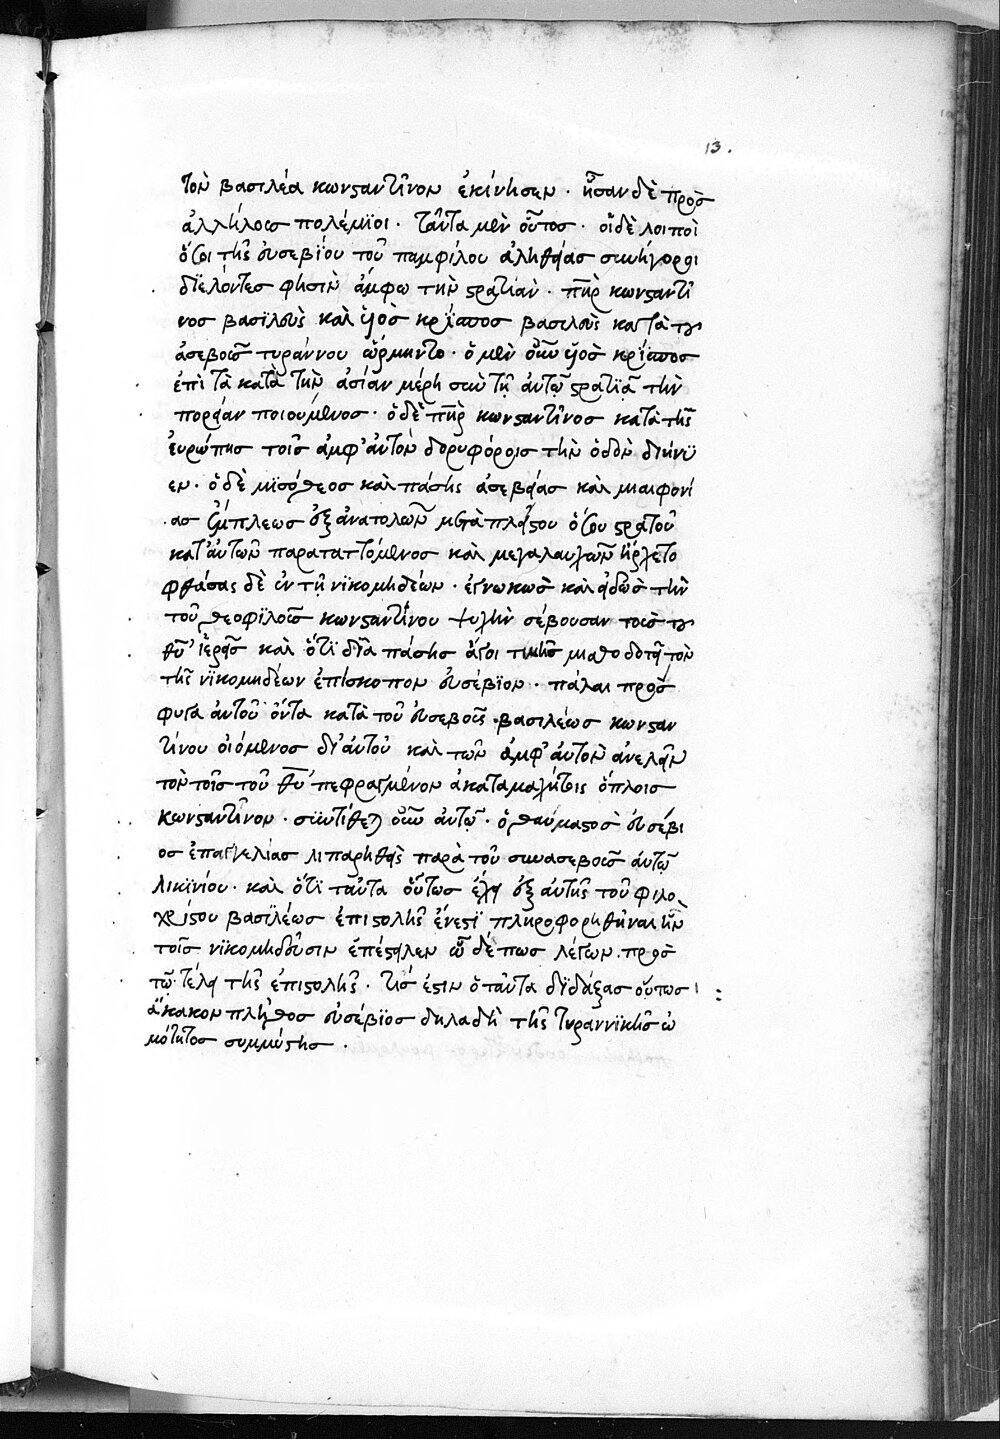 13.
τὸν βασιλέα κωνσταντῖνον ἐκίνησεν · ἦσαν δὲ πρὸς
ἀλλήλους πολέμϊοι · ταῦτα μὲν οὗτος · οἱ δὲ λοιποὶ
ὅσοι τῆς εὐσεβΐου τοῦ παμφίλου ἀληθείας συνήγοροι
διελόντες φησὶν ἄμφω τὴν στρατιὰν · πῆρ κωνσταντῖ
νος βασιλεὺς καὶ υἱὸς κρίσπος βασιλεὺς κατὰ τοῦ
ἀσεβοῦς τυράννου ὥρμηντο · ὁ μὲν οὖν υἱὸς κρίσπος
ἐπὶ τὰ κατὰ τὴν ἀσίαν μέρη σὺν τῇ αὐτῷ στρατϊᾷ τὴν
πορείαν ποιούμενος · ὁ δὲ πῆρ κωνσταντῖνος κατὰ τῆς
εὐρώπης τοῖς ἀμφ' αὐτὸν δορυφόροις τὴν ὁδὸν διήνϋ
εν · ὁ δὲ μϊσόθεος καὶ πάσης ἀσεβείας καὶ μιαιφονί
ας ἔμπλεως ἐξ ἀνατολῶν μετὰ πλείστου ὅσου στρατοῦ
κατ' αὐτῶν παρατατтόμενος καὶ μεγαλαυχῶν ἤρχετο
φθάσας δὲ ἐν τῇ νϊκομηδέων · ἐγνωκὼς καὶ εἰδὼς τὴν
τοῦ θεοφϊλοῦς κωνσταντίνου ψυχὴν σέβουσαν τοὺς τοῦ
θῦ ἱερεῖς καὶ ὅτϊ διὰ πάσης ἄγοι τιμῆς μισθοδοτεῖ τὸν
τῆς νϊκομηδέων ἐπίσκοπον εὐσέβϊον · πάλαι πρόσ
φυγα αὐτοῦ ὄντα κατὰ τοῦ εὐσεβοῦς βασιλέως κωνσταν
τίνου οἰόμενος δι' αὐτοῦ καὶ τῶν ἀμφ' αὐτὸν ἀνελεῖν
τὸν τοῖς τοῦ θῦ πεφραγμένον ἀκαταμαχήτοις ὅπλοις
κωνσταντῖνον · συντίθεται οὖν αὐτῷ · ὁ θαυμαστὸς εὐσέβι
ος ἐπαγγελίας λιπαρηθεὶς παρὰ τοῦ συνασεβοῦς αὐτῷ
λικϊνίου · καὶ ὅτϊ ταῦτα οὕτως ἔχει ἐξ αὐτῆς τοῦ φιλο
χρίστου βασιλέως ἐπιστολῆς ἔνεστϊ πληροφορηθῆναι ἣν
τοῖς νϊκομηδεῦσιν ἐπέστειλεν ὧδέ πως λέγων · πρὸς
τῷ τέλει τῆς ἐπιστολῆς · τίς ἐστιν ὁ ταῦτα δϊδάξας οὕτως
ἄκακον πλῆθος εὐσέβϊος δηλαδὴ τῆς τυραννϊκῆς ὠ
μότητος συμμύστης ·